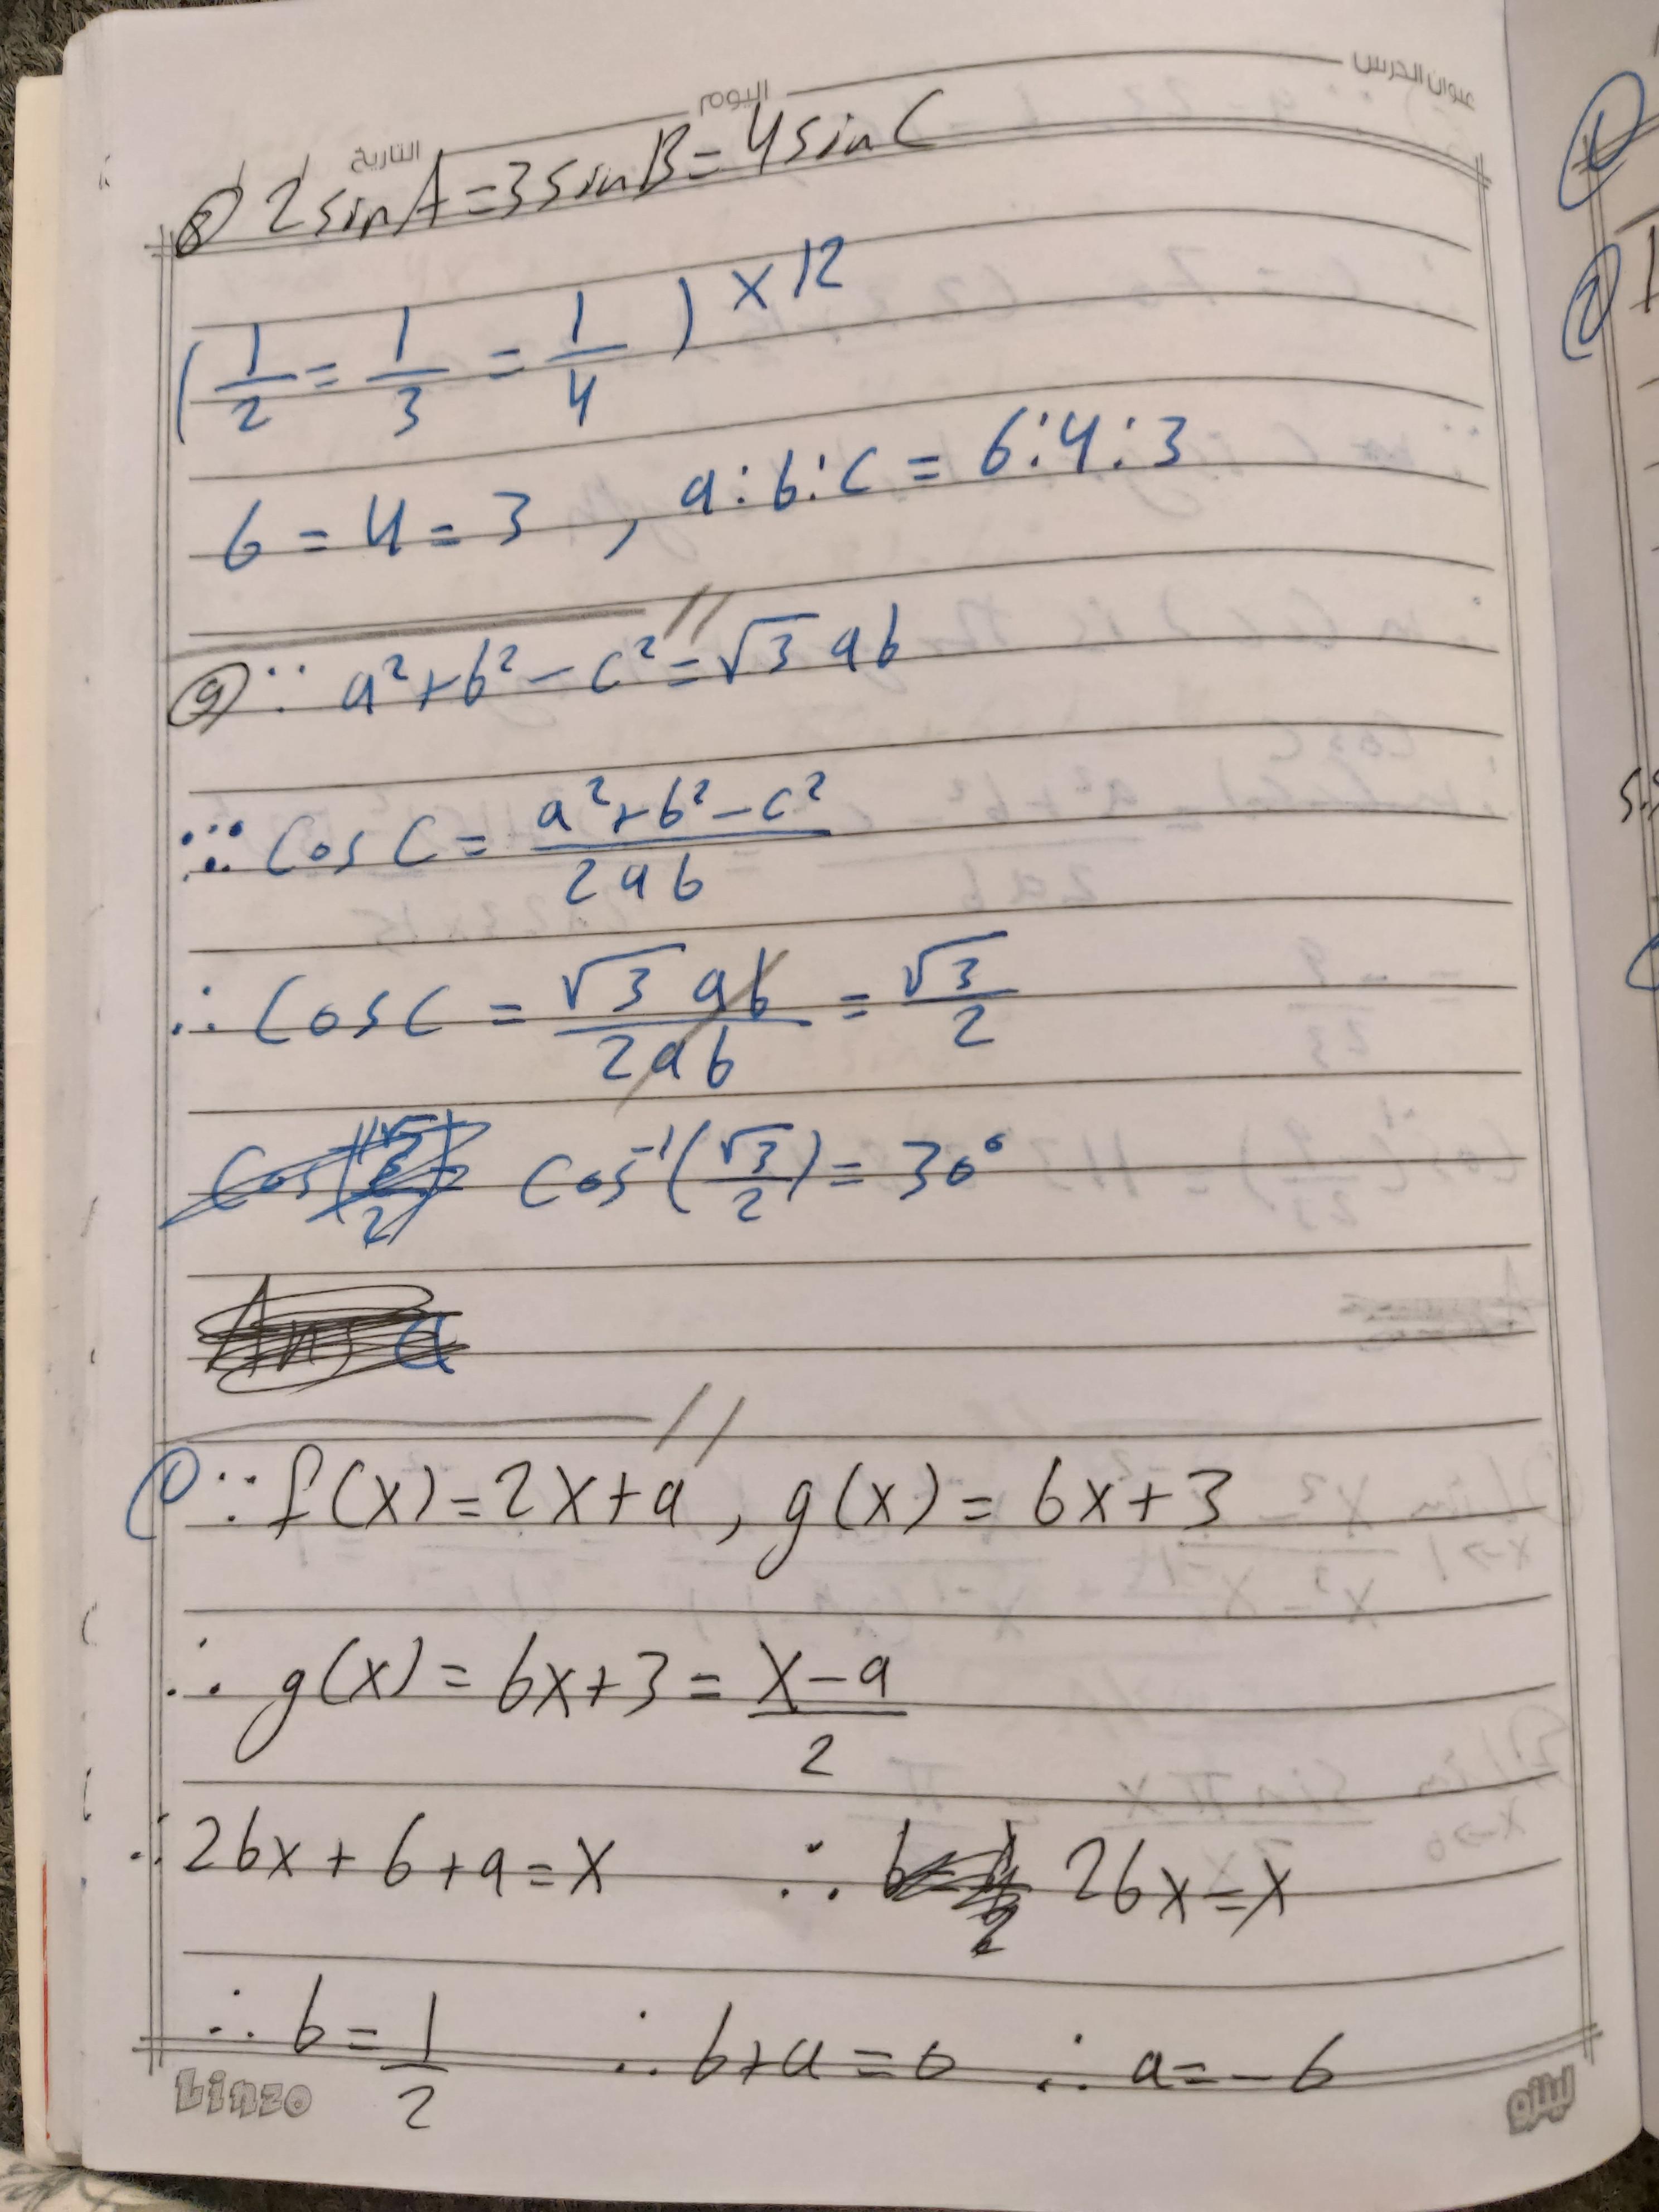 عنوان الدرس
اليوم
التاريخ
⑧ 2 sin A = 3 sin B = 4 sin C
( 1/2 = 1/3 = 1/4 ) × 12
6 = 4 = 3 , a : b : c = 6 : 4 : 3
⑨ ∵ a² + b² − c² = √3 ab
∵ ∴ Cos C = (a² + b² − c²) / 2ab
∴ Cos C = √3 ab / 2ab = √3 / 2
Cos⁻¹(√3/2) = 30°
∵ f(x) = 2x + a , g(x) = bx + 3
∴ g(x) = bx + 3 = (x − a) / 2
∴ 2bx + 6 + a = x ∴ 2bx = x
∴ b = 1/2 ∴ 6 + a = 0 ∴ a = −6
Linzo
لينزو